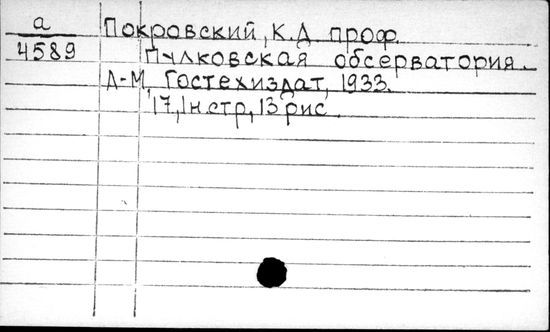 а
4589
Покровский, К.Д проф.
Пулковская обсерватория.
Л-М, Гостехиздат, 1933.
17, 1 н.стр, 13 рис.